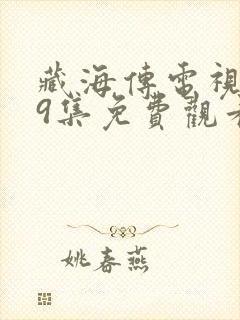 藏海傳電視
9集免費觀看
姚春燕